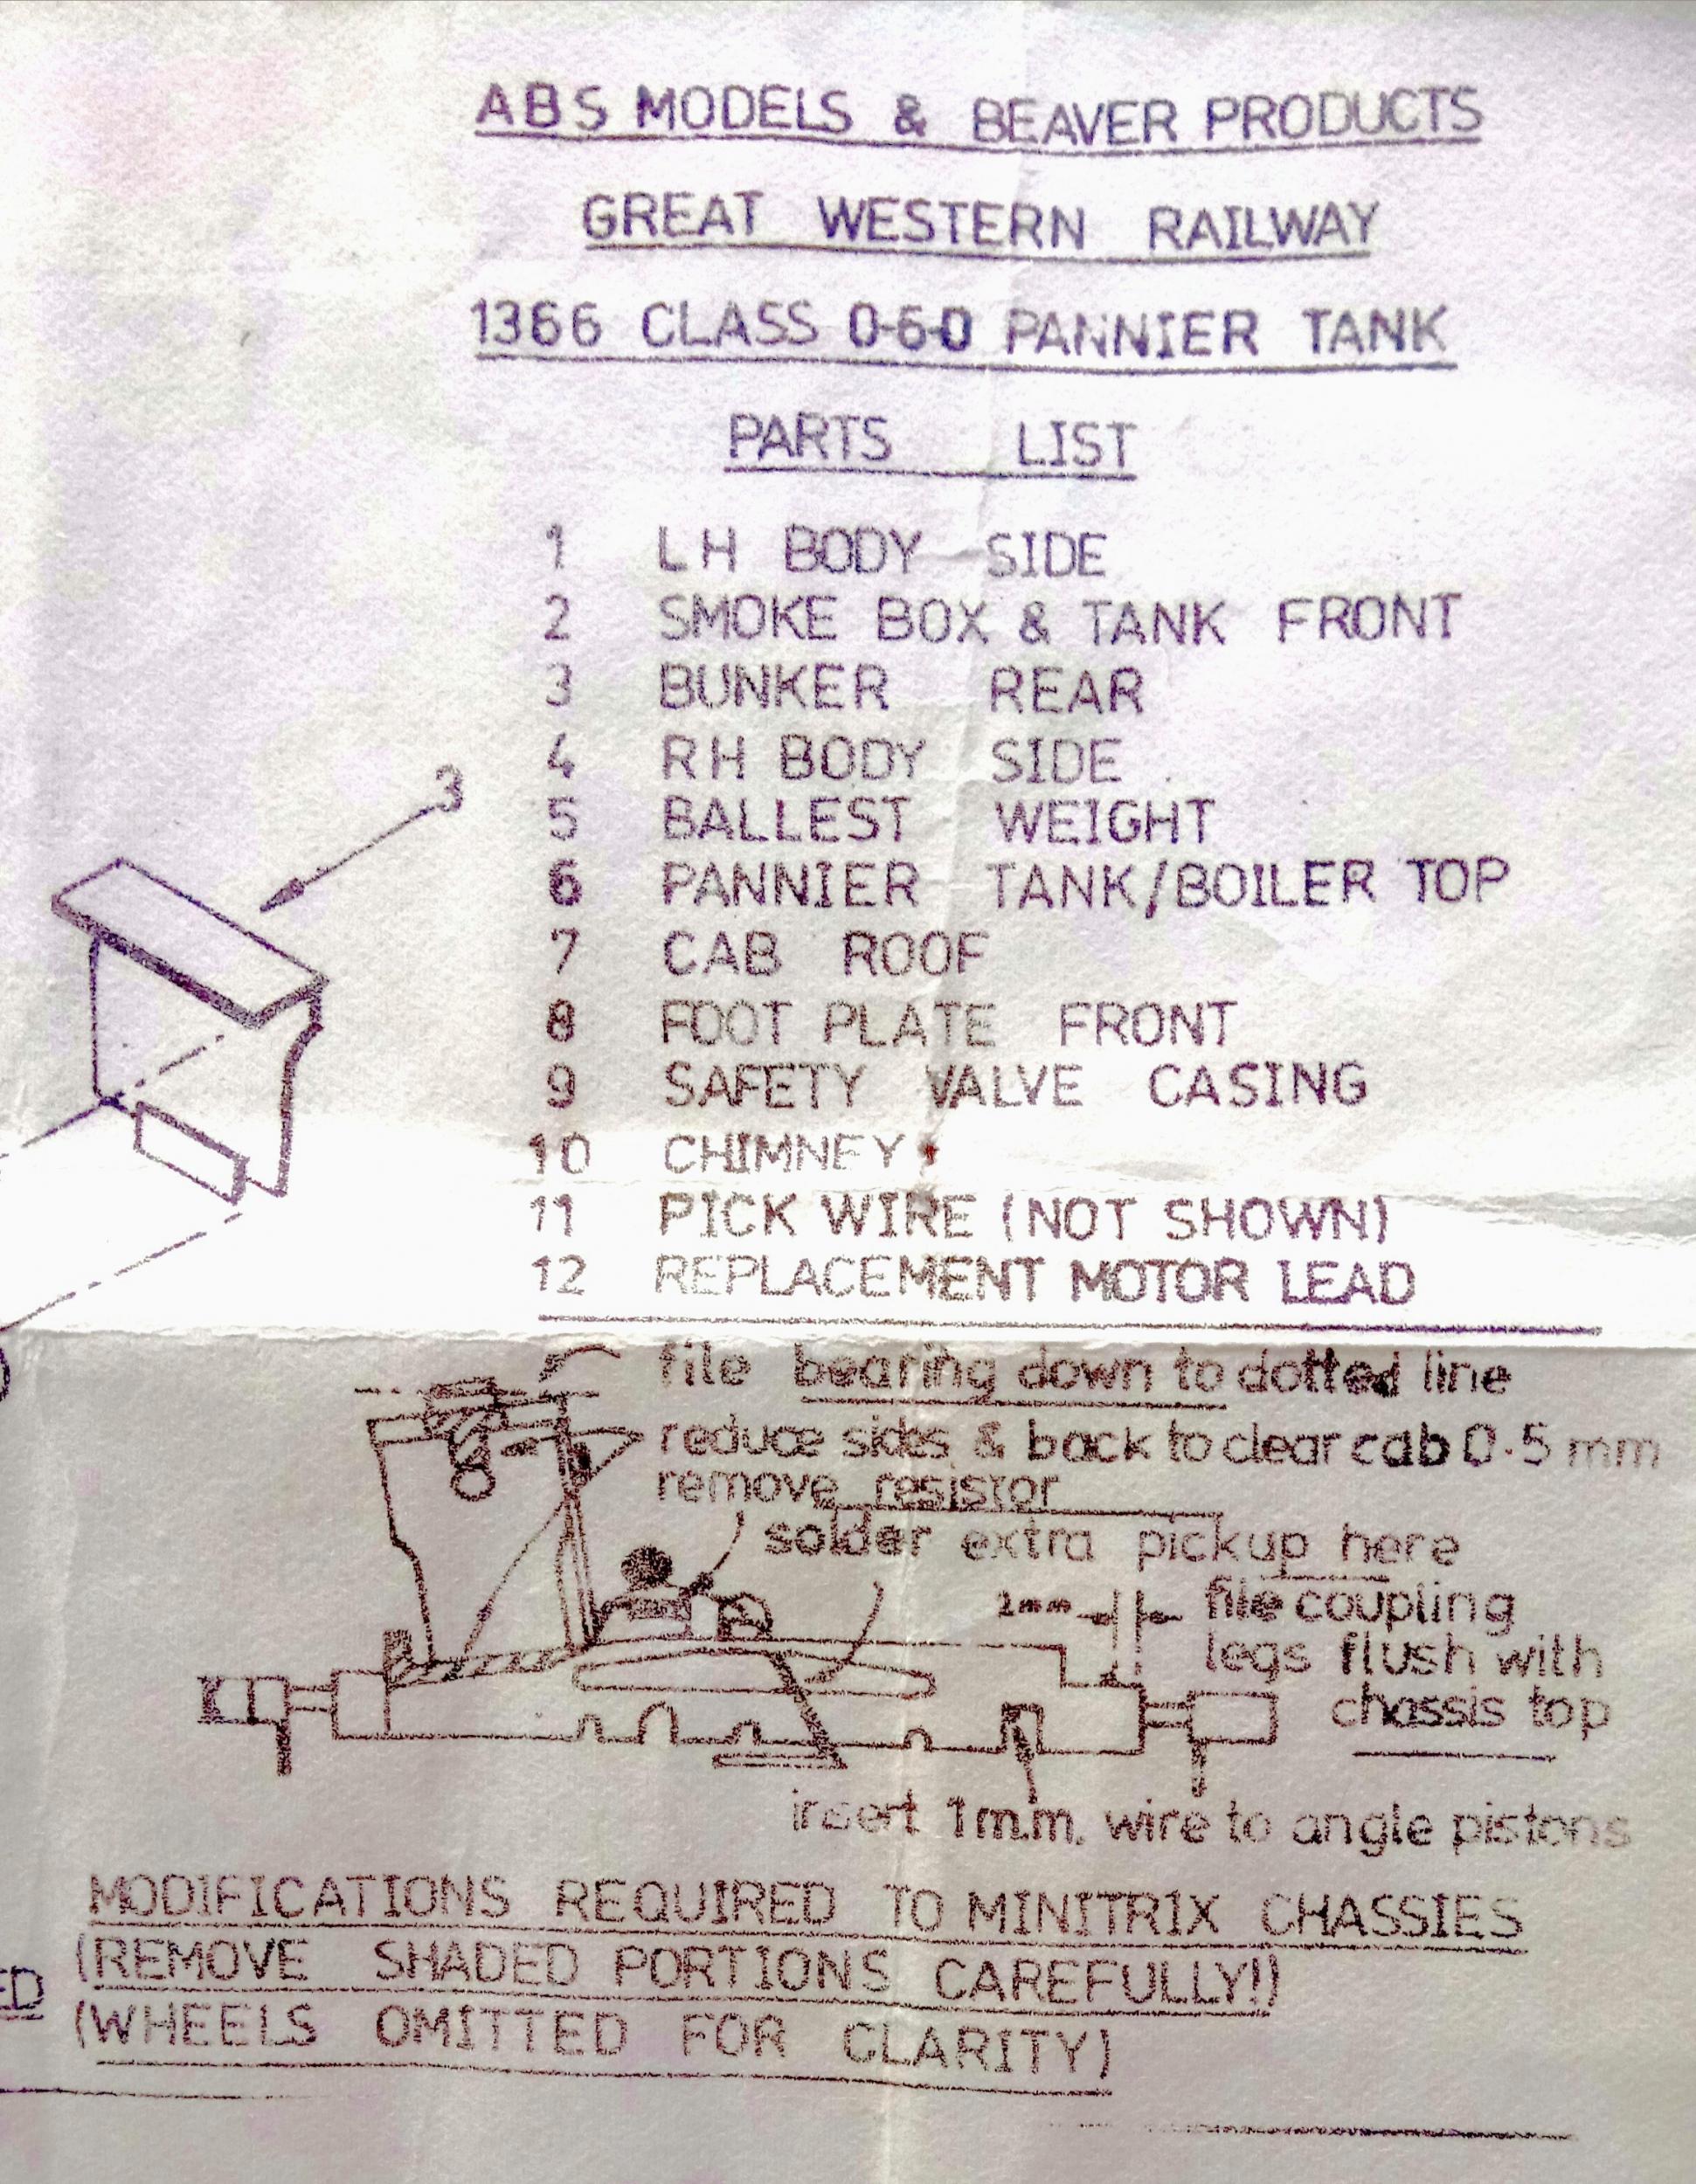 ABS MODELS & BEAVER PRODUCTS
GREAT WESTERN RAILWAY
1366 CLASS 0-6-0 PANNIER TANK
PARTS LIST
1 LH BODY SIDE
2 SMOKE BOX & TANK FRONT
3 BUNKER REAR
4 RH BODY SIDE
5 BALLEST WEIGHT
6 PANNIER TANK/BOILER TOP
7 CAB ROOF
8 FOOT PLATE FRONT
9 SAFETY VALVE CASING
10 CHIMNEY
11 PICK WIRE (NOT SHOWN)
12 REPLACEMENT MOTOR LEAD
3
file bearing down to dotted line
reduce sides & back to clear cab 0·5 mm
remove resistor
solder extra pickup here
file coupling
legs flush with
chassis top
insert 1m.m. wire to angle pistons
MODIFICATIONS REQUIRED TO MINITRIX CHASSIES
(REMOVE SHADED PORTIONS CAREFULLY!)
(WHEELS OMITTED FOR CLARITY)
ED